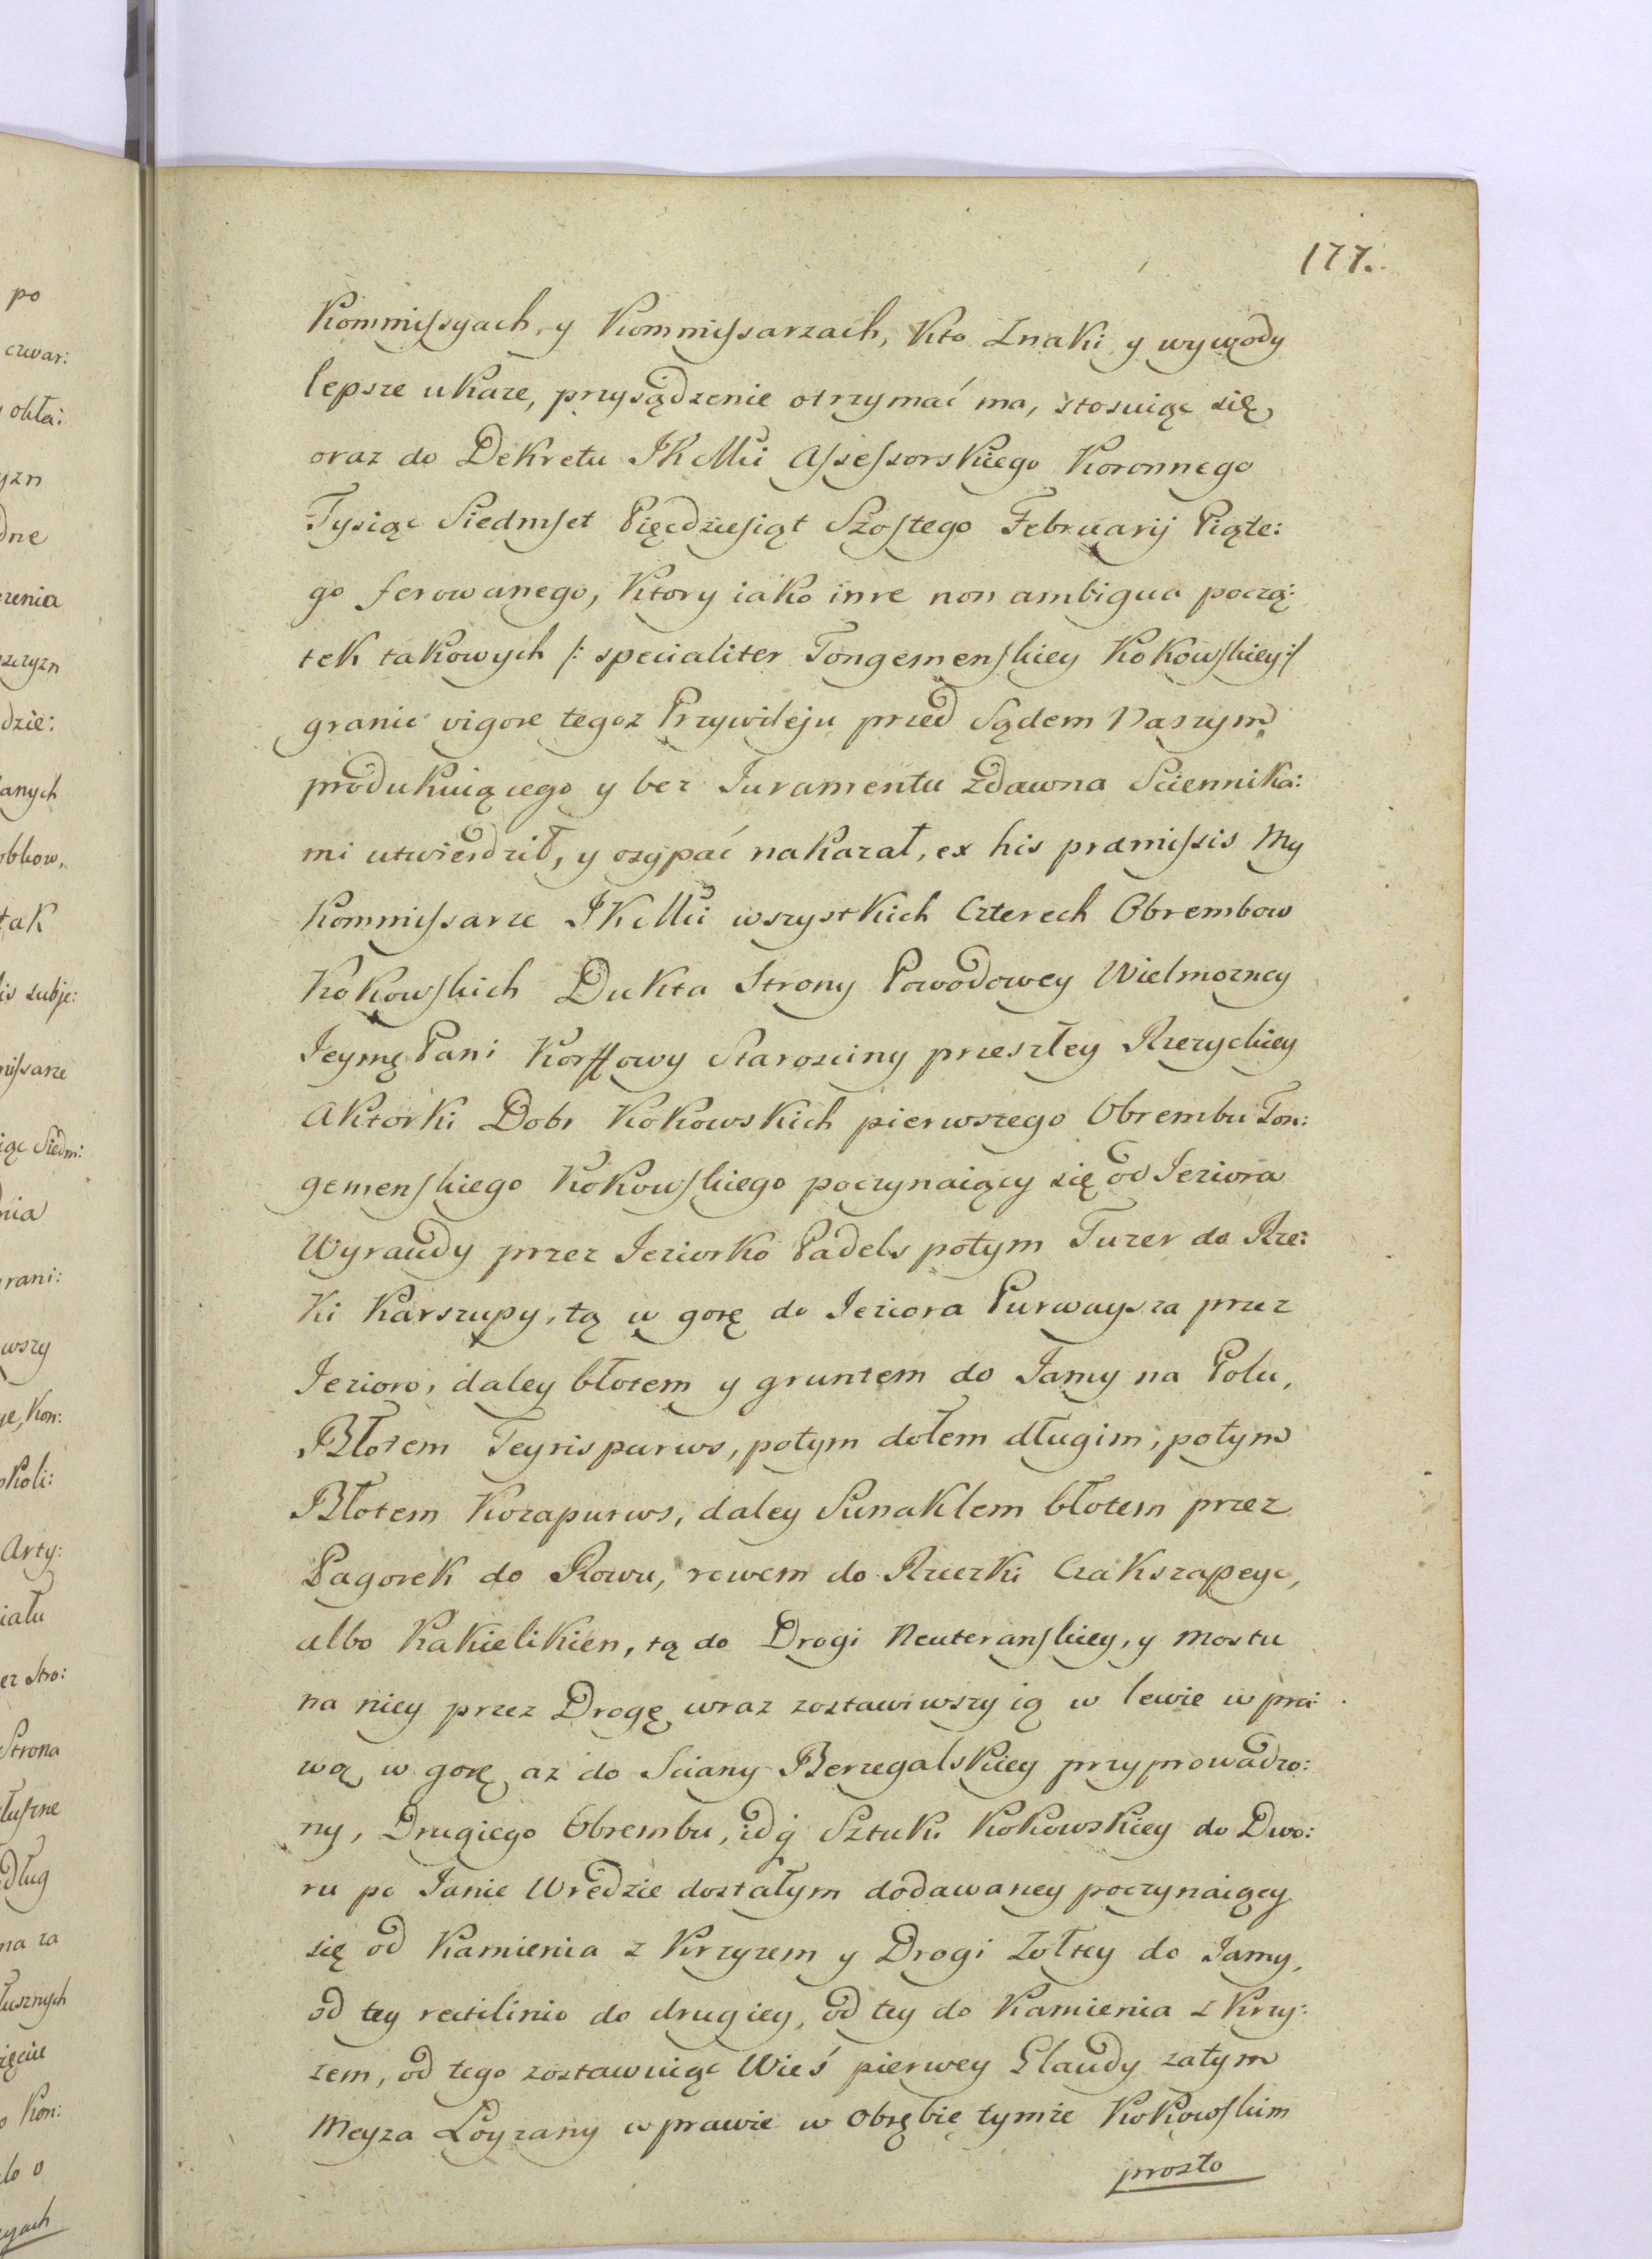 177.
Kommissyach, y Kommissarzach, Kto Znaki y wywody
lepsze ukaze, przysądzenie otrzymać ma, stosuiąc się
oraz do Dekretu JKMci Assessorskiego Koronnego
Tysiąc Siedmset Pięćdziesiąt Szostego Februarij Piąte:
go ferowanego, Ktory iako in re non ambigua począ:
tek takowych /: specialiter Tongemenskiey Kokowskiey :/
granic vigore tegoz Przywileju przed Sądem Naszym
produkuiącego y bez Juramentu zdawna Sciennika:
mi utwierdził, y osypać nakazał, ex his præmissis My
Kommissarze JKMci wszystkich Czterech Obrembow
Kokowskich Dukta Strony Powodowey Wielmozney
Jeymę Pani Korffowy Starosciny przeszłey Rzezyckiey
Aktorki Dobr Kokowskich pierwszego Obrembu Ton:
gemenskiego Kokowskiego poczynaiący się od Jeziora
Wyraudy przez Jeziorko Padels potym Turer do Rze:
ki Karszupy, tą w gorę do Jeziora Purwaysza przez
Jezioro, daley błotem y gruntem do Jamy na Polu,
Błotem Teyrispurws, potym dołem długim, potym
Błotem Kozapurws, daley Sunaklem błotem przez
Pagorek do Rowu, rowem do Rzeczki Czakszapeye,
albo Kakielikien, tą do Drogi Neuteranskiey, y mostu
na niey przez Drogę wraz zostawiwszy ią w lewie w pra:
wą w gorę az do Sciany Berzegalskiey przyprowadzo:
ny, Drugiego Obrembu, idq Sztuki Kokowskiey do Dwo:
ru po Janie Wredzie dostałym dodawaney poczynaiący
się od Kamienia z Krzyzem y Drogi Zołtey do Jamy,
od tey rectilinio do drugiey, od tey do Kamienia z Krzy:
zem, od tego zostawuiąc Wieś pierwey Glaudy zatym
Meyza Loyzany w prawie w obrębie tymze Kokowskim
prosto
po
czwar:
okła:
yzn
dne
zenia
szczyzn
dzie:
anych
obkow,
tak
is subje:
missarze
iąc Siedm:
nia
rani:
wszy
ye, Kon:
okoli:
Arty:
iału
ez Stro:
Strona
łuszne
dług
na za
łusznych
ięciu
o Kon:
do o
syach